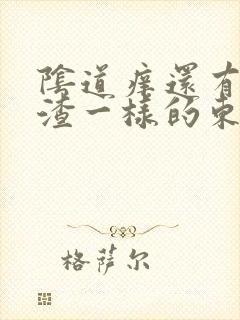 陰道癢還有
渣一樣的東
格萨尔